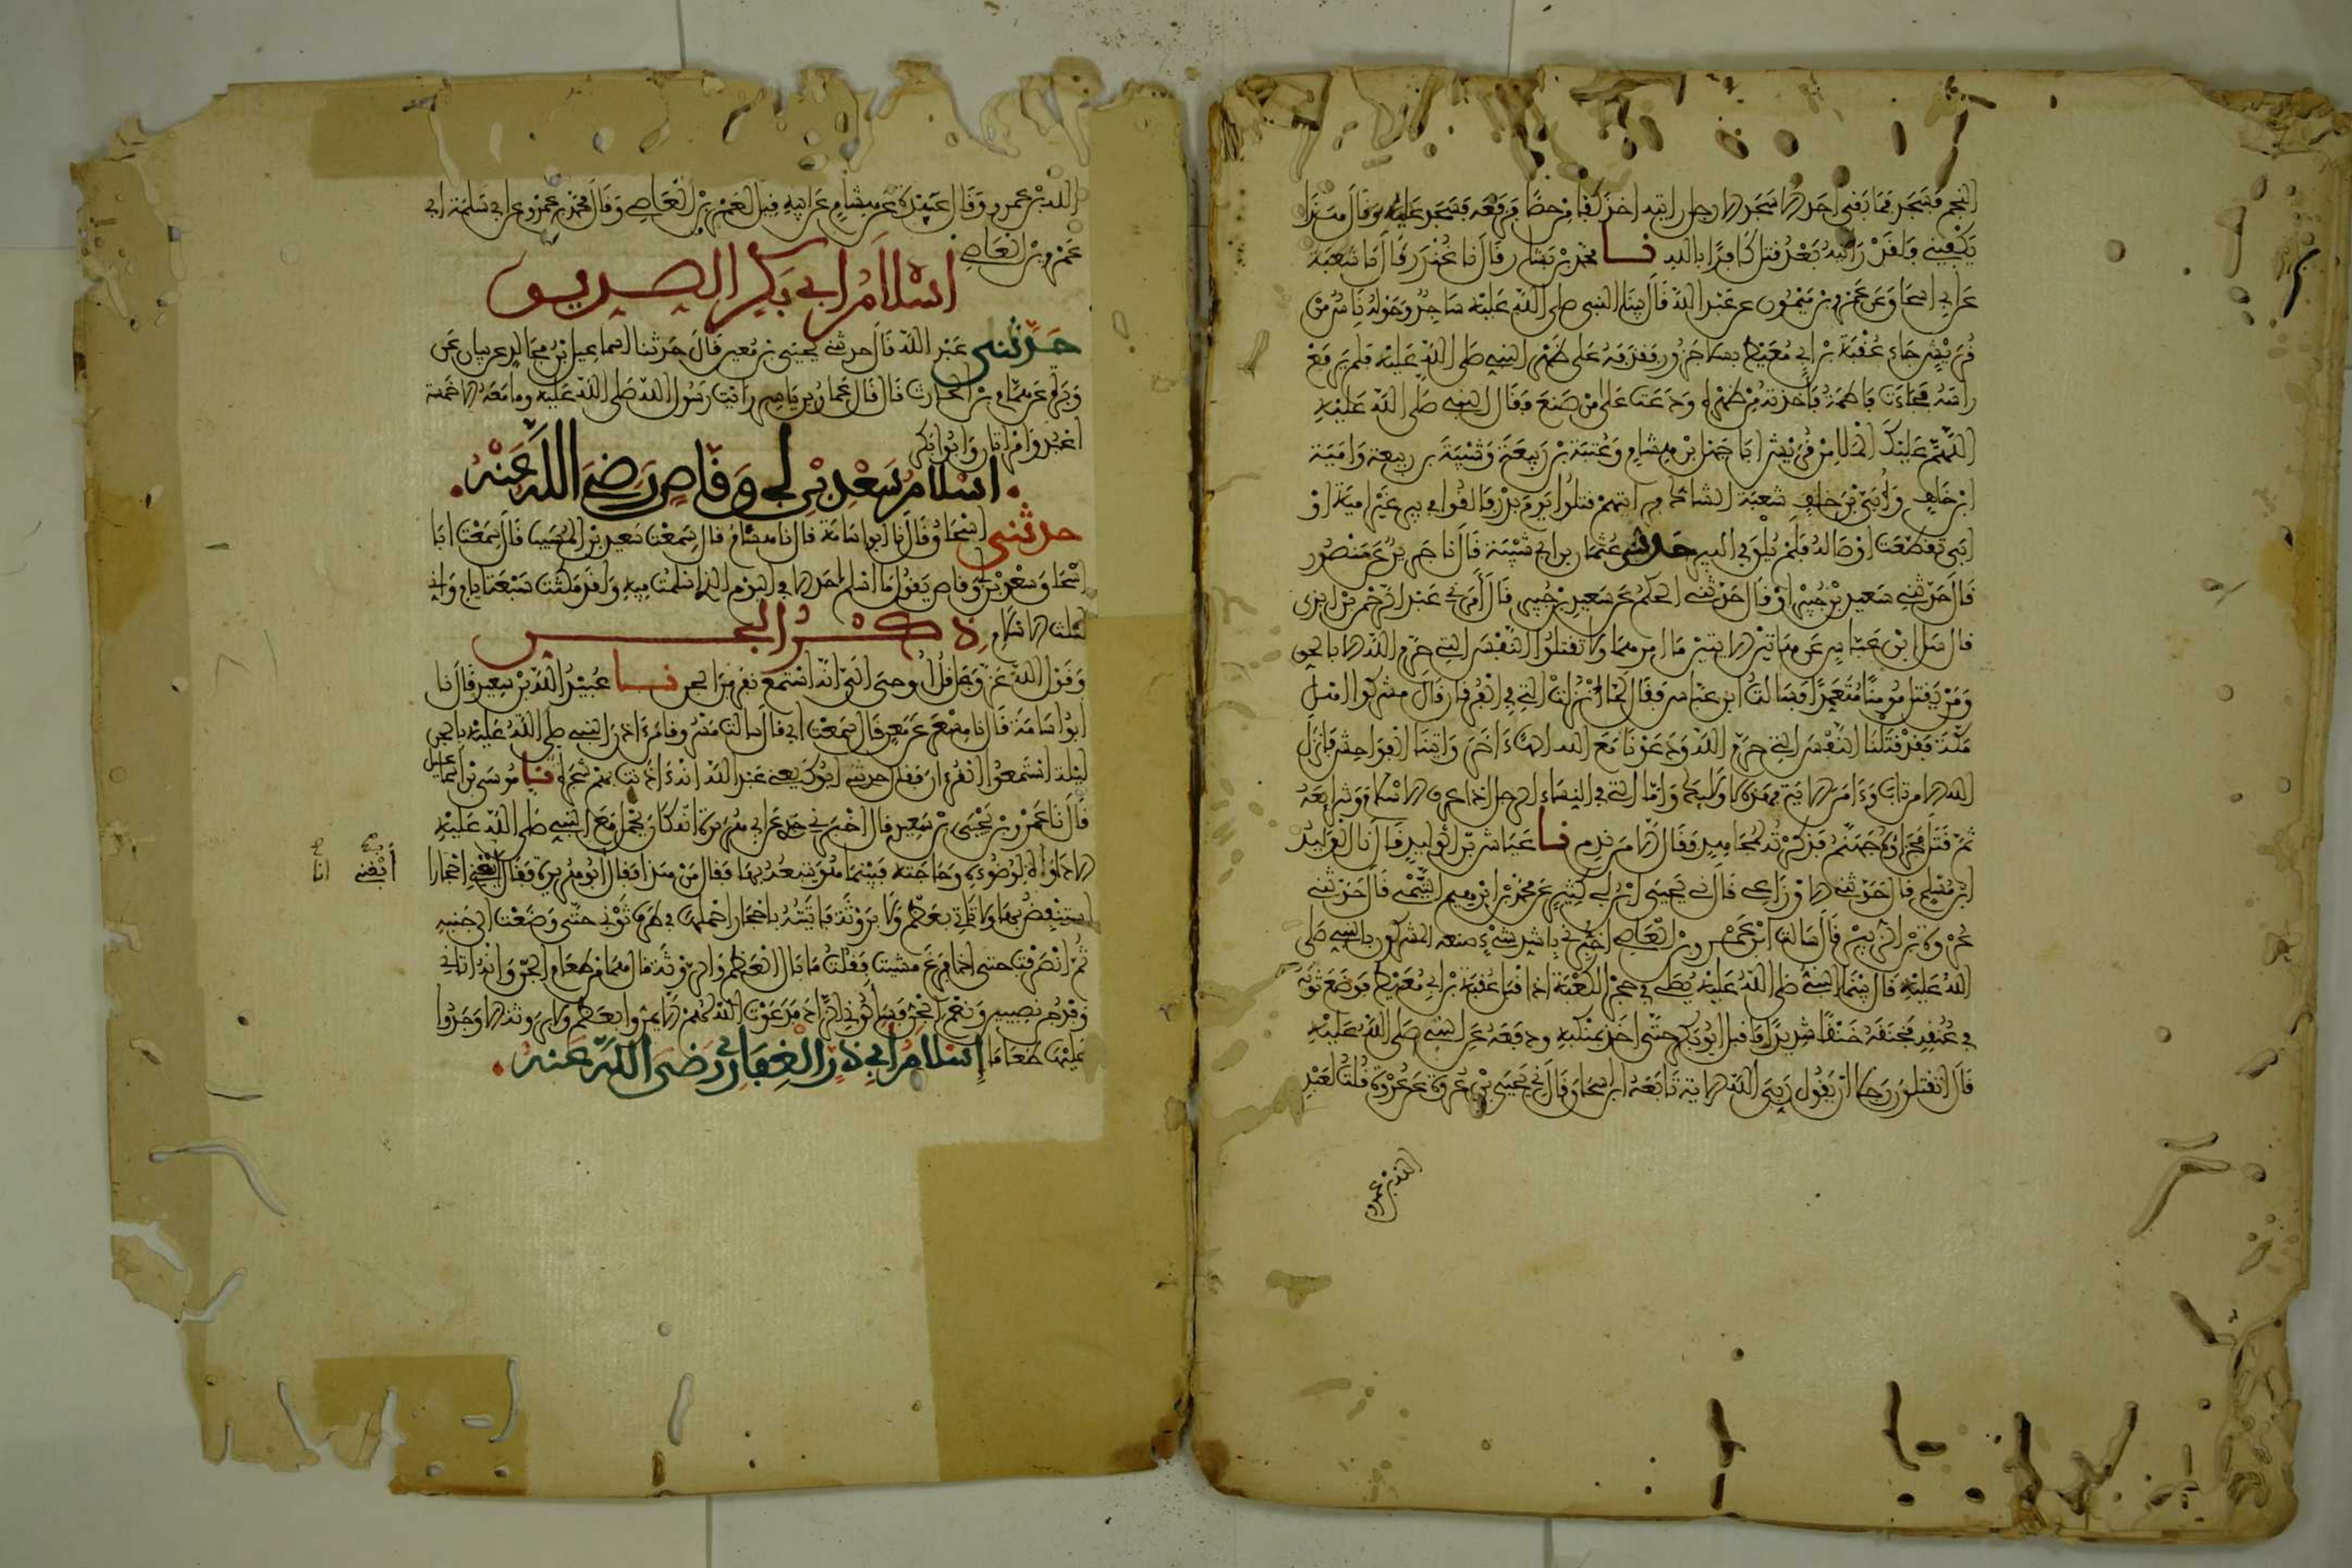 النجم فسجد فما بقي احد الا سجد الا رجل رايته اخذ كفا من حصا فرفعه فسجد عليه وقال هذا
يكفيني فلقد رايته بعد قتل كافرا بالله نا محمد بن بشار قال نا غندر قال نا شعبة
عن ابي اسحاق عن عمرو بن ميمون عن عبد الله قال بينا النبي صلى الله عليه ساجد وحوله ناس من
قريش جاء عقبة بن ابي معيط بسلا جزور فقذفه على ظهر النبي صلى الله عليه فلم يرفع
راسه فجاءت فاطمة فاخذته من ظهره ودعت على من صنع فقال النبي صلى الله عليه
اللهم عليك الملا من قريش ابا جهل بن هشام وعتبة بن ربيعة وشيبة بن ربيعة وامية
ابن خلف او ابي بن خلف شعبة الشاك فرايتهم قتلوا يوم بدر فالقوا في بير غير امية او
ابي تقطعت اوصاله فلم يلق في البير حدثني عثمان بن ابي شيبة قال نا جرير عن منصور
قال حدثني سعيد بن جبير او قال حدثني الحكم عن سعيد بن جبير قال امرني عبد الرحمن بن ابزى
قال سل ابن عباس عن هاتين الايتين ما امرهما ولا تقتلوا النفس التي حرم الله الا بالحق
ومن يقتل مومنا متعمدا فسالت ابن عباس فقال لما انزلت التي في الفرقان قال مشركوا اهل
مكة فقد قتلنا النفس التي حرم الله ودعونا مع الله الها ءاخر واتينا الفواحش فانزل
الله الا من تاب وءامن الاية فهذه لاوليك واما التي في النساء الرجل اذا عرف الاسلام وشرايعه
ثم قتل فجزاؤه جهنم فذكرته لمجاهد فقال الا من ندم نا عياش بن الوليد قال نا الوليد
ابن مسلم قال حدثني الاوزاعي قال ني يحيى ابن ابي كثير عن محمد بن ابرهيم التيمي قال حدثني
عروة بن الزبير قال سالت ابن عمرو بن العاصي اخبرني باشد شيء صنعه المشركون بالنبي صلى
الله عليه قال بينما النبي صلى الله عليه يصلي في حجر الكعبة اذ اقبل عقبة بن ابي معيط فوضع ثوبه
في عنقه فخنقه خنقا شديدا فاقبل ابو بكر حتى اخذ بمنكبه ودفعه عن النبي صلى الله عليه
قال اتقتلون رجلا ان يقول ربي الله الاية تابعه ابن اسحاق قال ني يحيى بن عروة عن عروة قلت لعبد
الله بن عمرو
الله بن عمرو وقال عبدة عن هشام عن ابيه قيل لعمرو بن العاصي وقال محمد بن عمرو عن ابي سلمة ني
عمرو بن العاصي
اسلام ابي بكر الصديق
حدثني عبد الله قال حدثني يحيى بن معين قال حدثنا اسماعيل بن مجالد عن بيان عن
وبرة عن همام بن الحارث قال قال عمار بن ياسر رايت رسول الله صلى الله عليه وما معه الا خمسة
اعبد وامراتان وابو بكر
اسلام سعد بن ابي وقاص رضي الله عنه
حدثني اسحاق قال نا ابو اسامة قال نا هشام قال سمعت سعيد بن المسيب قال سمعت ابا
اسحاق سعد بن ابي وقاص يقول ما اسلم احد الا في اليوم الذي اسلمت فيه ولقد مكثت سبعة ايام واني
لثلث الاسلام
ذكر الجن
وقول الله عز وجل قل اوحي الي انه استمع نفر من الجن نا عبيد الله بن سعيد قال نا
ابو اسامة قال نا مسعر عن معن قال سمعت ابي قال سالت مسروقا من ءاذن النبي صلى الله عليه بالجن
ليلة استمعوا القرءان فقال حدثني ابوك يعني عبد الله انه ءاذنت بهم شجرة نا موسى بن اسماعيل
قال نا عمرو بن يحيى بن سعيد قال اخبرني جدي عن ابي هريرة انه كان يحمل مع النبي صلى الله عليه
الاداوة لوضوءه وحاجته فبينما هو يتبعه بها فقال من هذا فقال ابو هريرة فقال ابغني احجارا
ابغني
انا
استنفض بها ولا تاتني بعظم ولا بروثة فاتيته باحجار احملها في طرف ثوبي حتى وضعت الى جنبه
ثم انصرفت حتى اذا فرغ مشيت فقلت ما بال العظم والروثة قال هما من طعام الجن وانه اتاني
وفد جن نصيبين ونعم الجن فسالوني الزاد فدعوت الله لهم ان لا يمروا بعظم ولا بروثة الا وجدوا
عليها طعاما اسلام ابي ذر الغفاري رضي الله عنه